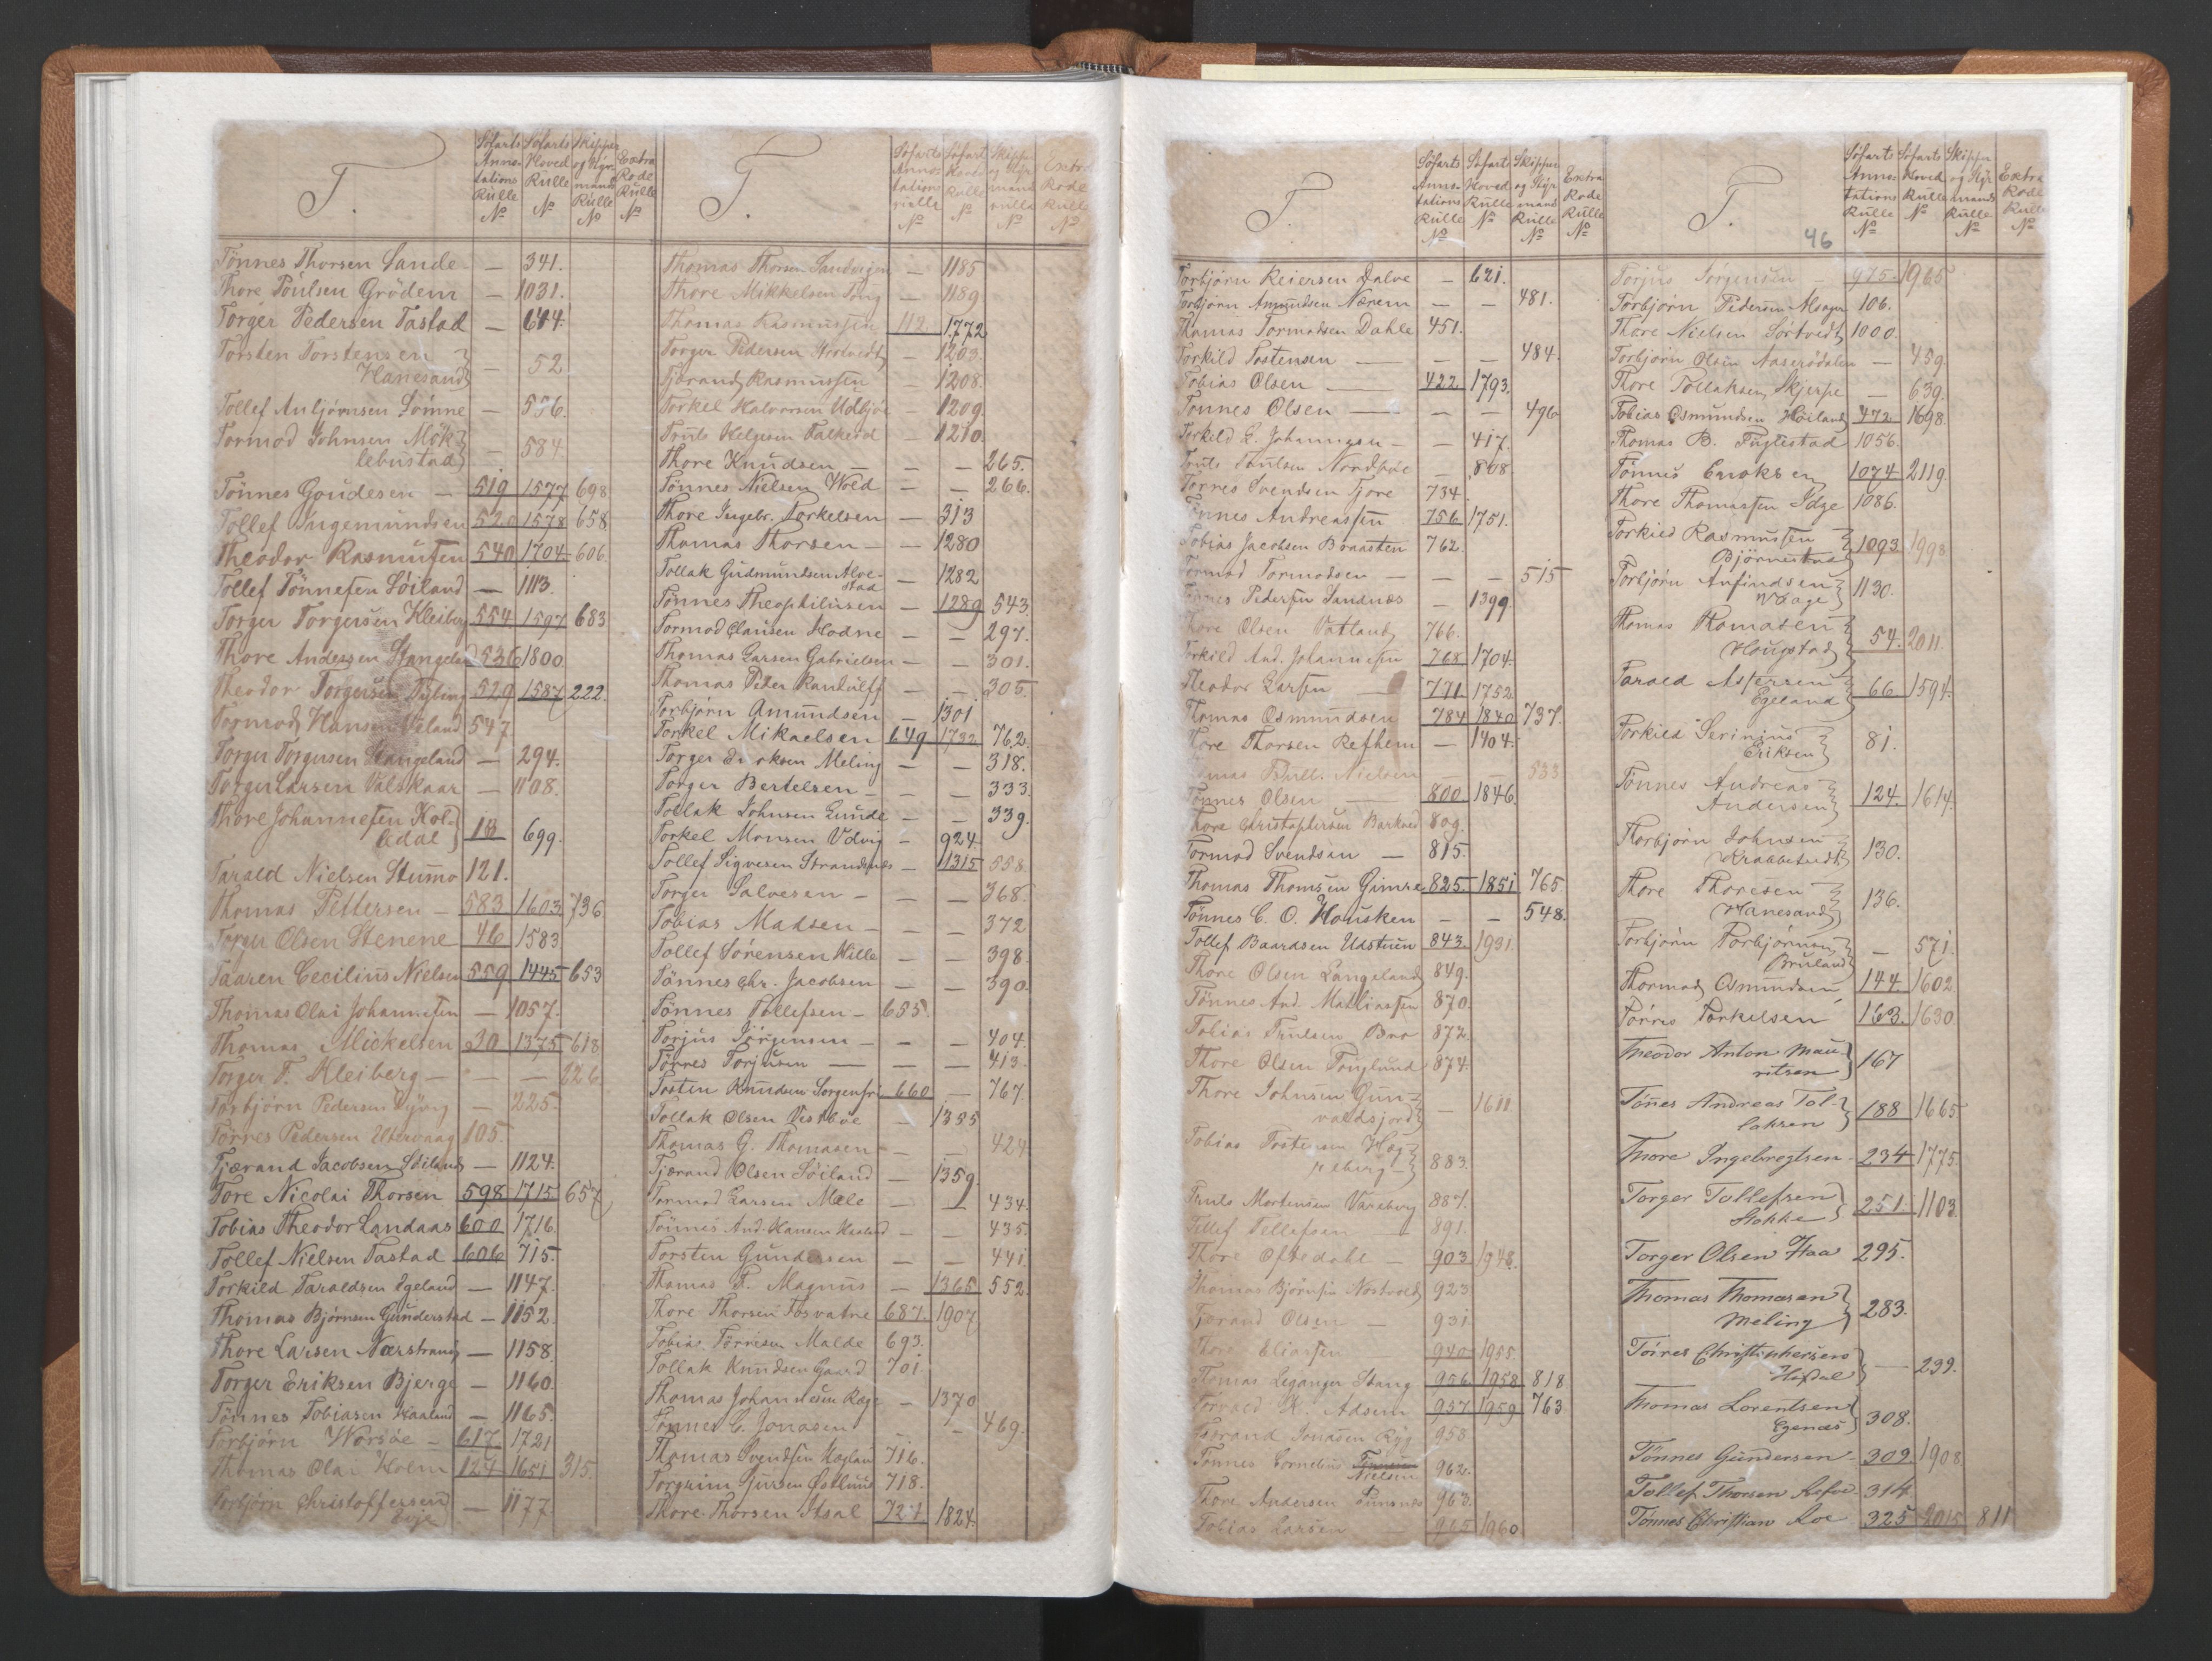 T.
Söfarts Annotations Rulle No
Söfarts Hoved Rulle No
Skipper og Styrmands Rulle No
Extra Rode Rulle No
Tönnes Thorsen Sande — 341.
Thore Poulsen Grödem — 1031.
Torger Pedersen Tastad — 644.
Torsten Torstensen
Hanesand — 52
Tollef Anbjörnsen Sömme — 556.
Tormod Johnsen Mök-
lebustad — 584.
Tönnes Goudesen — 519 1577 698
Tollef Ingemundsen 520 1578 658
Theodor Rasmussen 540 1704 606.
Tollef Tönnesen Söiland — 1113.
Torger Torgersen Kleiberg 554 1597 683
Thore Andersen Stangeland 536 1800
Theodor Torgersen 529 1587 222.
Tormod Hansen Väland 547
Torger Torgersen Stangeland — 294.
Torger Larsen Valskaar — 1108.
Thore Johannesen Kol-
ledal 18 699.
Tarald Nielsen Stumo 121.
Thomas Pettersen — 583 1603 736
Torger Olsen Stenene 46 1583
Taaren Cecilius Nielsen 559 1445 653
Thomas Olai Johannesen — 1057.
Thomas Mickelsen 30 1375 618
Torger T. Kleiberg — — — 226
Torbjörn Pedersen — 225.
Törres Pedersen Utervaag 105.
Tjærand Jacobsen Söiland — 1124.
Tore Nicolai Thorsen 598 1715 657
Tobias Theodor Landaas 600 1716.
Tollef Nielsen Tastad 606 715.
Torkild Taraldsen Egeland — 1147.
Thomas Björnsen Gunderstad — 1152.
Thore Larsen Nærstrand — 1158.
Torger Eriksen Bjerge — 1160.
Tönnes Tobiasen Haaland — 1165.
Torbjörn Worsöe — 617 1721
Thomas Olai Holm 124 1651 315.
Torbjörn Christoffersen
Eige — 1177.
T.
Söfarts Annotations rulle No
Söfarts Hoved Rulle No
Skipper og Styrmands rulle No
Extra Rode Rulle No
Thomas Thorsen Sandvigen — 1185
Thore Mikkelsen Tong — 1189
Thomas Rasmussen 112 1772
Torger Pedersen — 1203.
Tjörand Rasmussen — 1208.
Torkel Halvorsen Udbjöe — 1209.
Truls Helgesen Falkeid — 1210.
Thore Knudsen — — — 265.
Tönnes Nielsen Wold — — 266.
Thore Ingebr. Torkelsen — 313
Thomas Thorsen — — 1280
Tollak Gudmundsen Alve-
stad — 1282
Tönnes Theophilusen — 1289 543
Tormod Clausen Hodne — — 297.
Thomas Larsen Gabrielsen — — 301.
Thomas Peder Randulff — — 305.
Torbjörn Amundsen — 1301
Torkel Mikaelsen 649 1732 762.
Torger Eriksen Meling — — 318.
Torger Bertelsen — — — 333
Tollak Johnsen Lunde — — 339.
Torkel Monsen Udvig — 924.
Tollef Sigvesen Strandenæs — 1315 558.
Torger Salvesen — — — 368.
Tobias Madsen — — — 372
Tollef Sörensen Wille — — 398.
Tönnes Chr. Jacobsen — — 390.
Tönnes Tollefsen — 655
Torjus Jörgensen — — — 404.
Törres Torjusen — — — 413.
Tosten Knudsen Sorgenfri 660 — 767.
Tollak Olsen Vestböe — 1355
Thomas G. Thomasen — — 424
Tjærand Olsen Söiland — 1359.
Tormod Larsen Mæle — — 434.
Tönnes And. Hansen — — 435.
Torsten Gundersen — — 441.
Thomas F. Magnus — 1365 552.
Thore Thorsen Fosvatne 687. 1907
Tobias Törresen Malde 693.
Tollak Knudsen Gaard 701.
Thomas Johannesen Rege — 1370
Tönnes C. Jonasen — — 469.
Thomas Svendsen 716.
Torgrim Sjursen Østhus 718.
Thore Thorsen 727 1824.
T.
Söfarts Annotations Rulle No
Söfarts Hoved Rulle No
Skipper og Styrmands Rulle No
Extra Rode Rulle No
Torbjörn Reiersen Dalve — 621.
Torbjörn Amundsen Nærem — — 481.
Thomas Tormodsen Dahle 451.
Torkild Tostensen — — — 484.
Tobias Olsen — 422 1793.
Tönnes Olsen — — — 496
Torkild L. Johannesen — — 417.
Truls Poulsen Nordböe — 808.
Törres Svendsen Tjore 734.
Tönnes Andreassen 756 1751.
Tobias Jacobsen Braasten 762.
Tormod Tormodsen — — — 515
Tönnes Pedersen Sandnæs — 1399.
Thore Olsen Vatland 766.
Torkild And. Johannesen 768 1704.
Theodor Larsen — 771 1752.
Thomas Osmundsen 784 1840 737.
Thore Thorsen Refhem — 1404.
Thomas Bull. Nielsen — 533
Tönnes Olsen 800 1846.
Thore Christophersen Barkved 809.
Tormod Svendsen — 815.
Thomas Thomsen Gimre 825. 1851 765
Tönnes C. O. Housken — — 548.
Tollef Baardsen Udstuen 843. 1931.
Thore Olsen Langeland 849.
Tönnes And. Mathiassen 870.
Tobias Trulsen Bro 872.
Thore Olsen Fuglund 874.
Thore Johnsen Gun-
valdsjord — 1611
Tobias Tostensen Hog-
neberg 883.
Truls Mortensen Varaberg 887.
Tellef Tellefsen — 891.
Thore Oftedahl — 903 1948.
Thomas Björnsen Nostvold 923
Tjörand Olsen — 931
Thore Eliassen 940 1955.
Thomas Leganger Stang 956 1958 818
Törraed K. Adsem 957 1959 763
Tjörand Jonasen Ryg 958
Tönnes Cornelius
Nielsen 962.
Thore Andersen 963.
Tobias Larsen 965 1960
T.
46
Söfarts Annotations Rulle No
Söfarts Hoved Rulle No
Skipper og Styrmands Rulle No
Extra Rode Rulle No
Torjus Jörgensen — 975. 1966
Torbjörn Pedersen Aksager 106.
Thore Nielsen Sortvedt 1000.
Torbjörn Olsen Aaserödalen — 459.
Thore Tollaksen Skjerpe — 639.
Tobias Osmundsen Höiland 472 1698.
Thomas B. Fuglestad 1056.
Tönnes Enoksen 1074 2119.
Thore Thomassen Idge 1086.
Torkild Rasmussen
Björnestad 1093 1998
Torbjörn Anfindsen
Waage 1130.
Thomas Thomasen
Hougstad 54. 2011
Tarald Assersen
Egeland 66 1594.
Torkild Serinius
Eriksen 81.
Tönnes Andreas
Andersen 124. 1614.
Thorbjörn Johnsen
Krabbetvedt 130.
Thore Thoresen
Hanesand 136.
Torbjörn Torbjörnsen
Bruland — 571.
Thormod Osmundsen 144. 1602
Törres Torkelsen 163. 1630
Theodor Anton Mau-
ritzen 167
Tönnes Andreas Tol-
laksen 188 1665
Thore Ingebregtsen 234 1775
Torger Tollefsen
Stokke 251 1103.
Torger Olsen Haa 295.
Thomas Thomasen
Meling 283.
Törres Christophersen
Hafdal — 239.
Thomas Lorentsen
Egenæs 308.
Tönnes Gundersen 309 1908.
Tollef Thorsen Refve 314.
Tönnes Christian Roe 325 2015 811